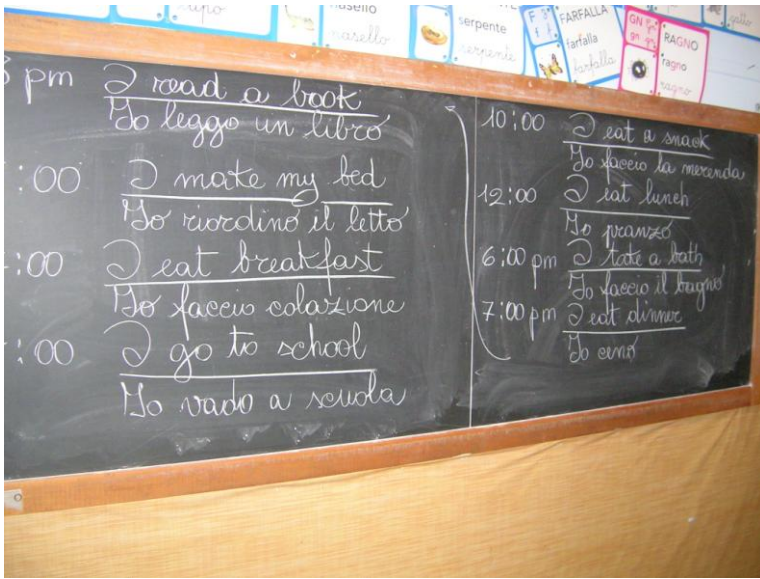 nasello
nasello
serpente
serpente
F
f
FARFALLA
farfalla
farfalla
GN
gn
RAGNO
ragno
ragno
gallo
pm I read a book
Io leggo un libro
:00 I make my bed
Io riordino il letto
:00 I eat breakfast
Io faccio colazione
:00 I go to school
Io vado a scuola
10:00 I eat a snack
Io faccio la merenda
12:00 I eat lunch
Io pranzo
6:00 pm I take a bath
Io faccio il bagno
7:00 pm I eat dinner
Io ceno